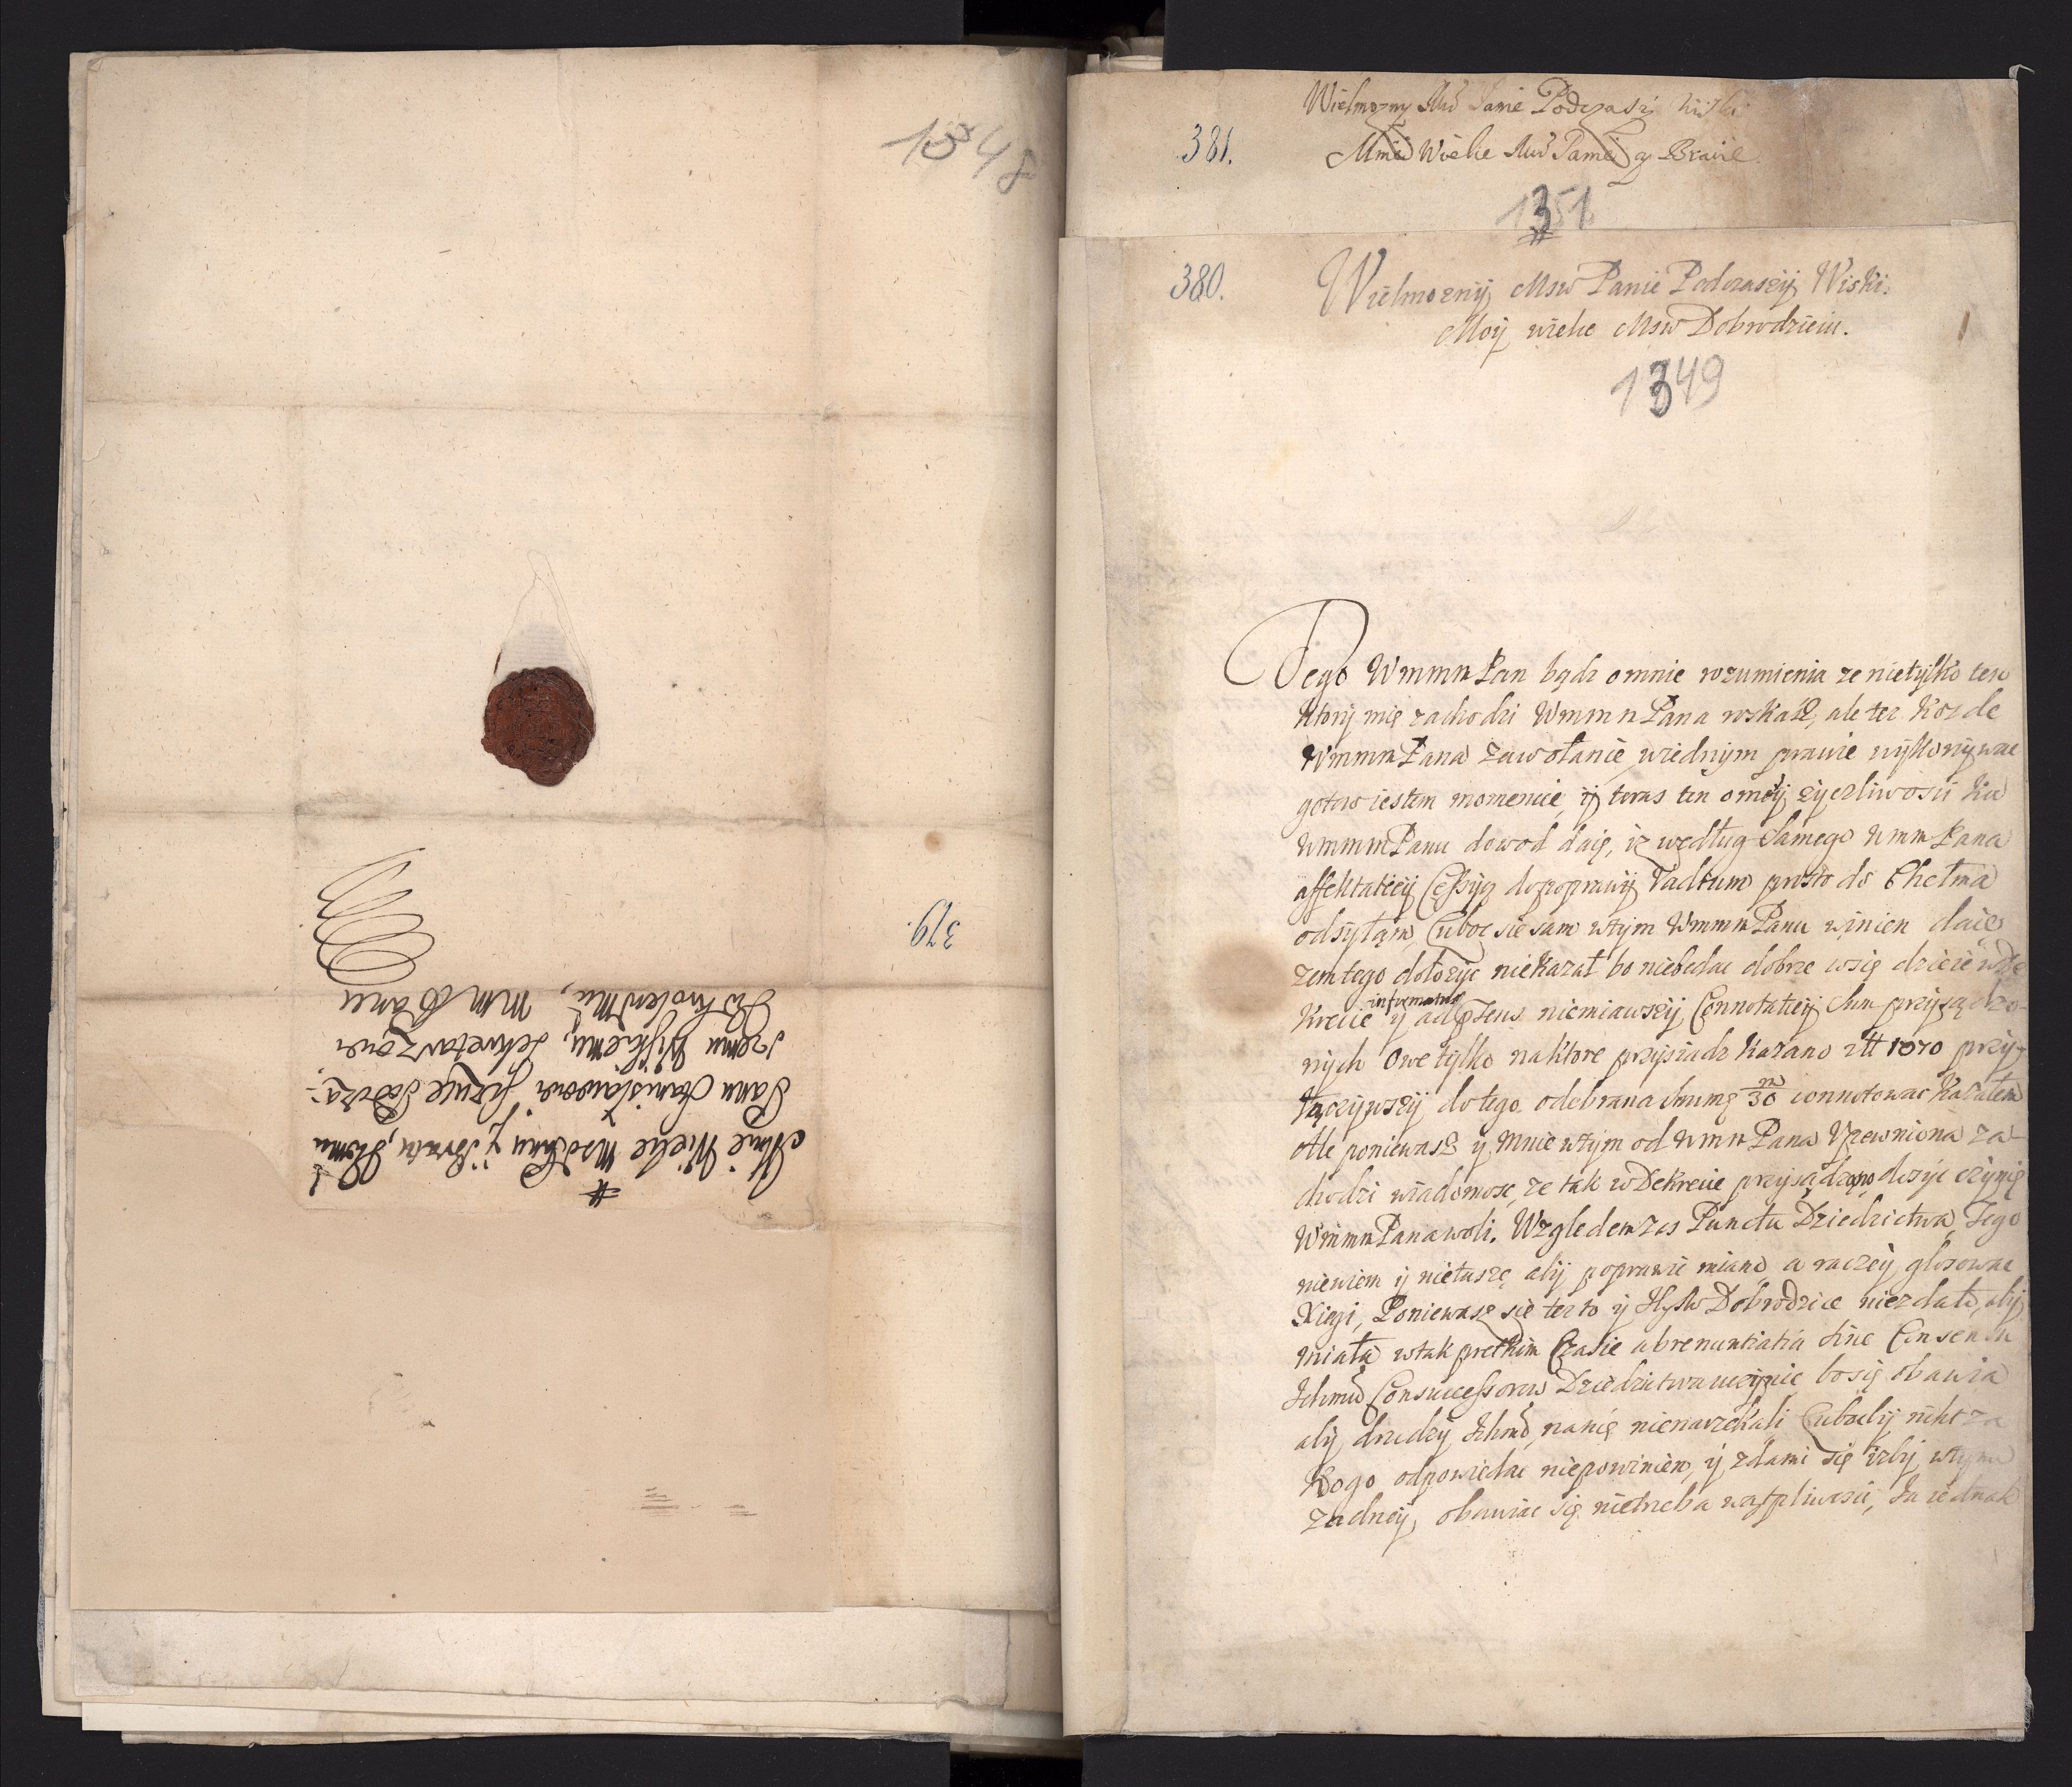 1348
379.
Mnie Wielce Mscmu Panu y Bratu, Jegomu
Panu Stanisławowi
szemu Wyskiemu, Sekretarzowi
Jo Krolewskiey Mci, MM Panu
381.
Wielmozny Mśc Panie Podczaszy Wiski
Mnie Wielce Mśc Panie y Bracie
1351
380.
Wielmoznÿ Msw Panie Podczaszÿ Wiski.
Moÿ wielce Msw Dobrodzieiu.
1349
Tego WmmmPan bądz omnie rozumienia ze nietÿlko ten
ktorÿ mię zachodzi WmmnPana wskaz, ale tez kozde
WmmmPana zawołanie wiednym prawie wÿkonÿwac
gotow iestem momencie, ÿ teras ten omoiÿ zÿczliwosci ku
WmmmPanu dowod daię, iz według Samego WmmPana
affektatieÿ Cessÿą dopoprawÿ Vadium prosto do Chełma
odsÿłąm, Luboc sie sam wtÿm WmmnPanu winien daię
zemtego dołozÿc niekazał bo niebedac dobrze wsię dzieie wde
krecie informatus ÿ ad niemiawszÿ Connotatieÿ Sum przÿsądzo-
nÿch Owe tylko naktore przÿsiadz kazano złł 1070 przÿ
łączÿwszÿ dotego odebrana Summę 30 connotowac kazałem
Ale poniewasz ÿ mnie wtÿm od WmnPana Upewniona za-
chodzi wiadomosc, ze tak wDekrecie przysądzono dosÿc czÿnię
WmmnPana woli. Wzgledem zas Punctu Dziedzictwa, Tego
niewiem ÿ nietuszę abÿ poprawic miano a raczeÿ glosowac
Xięgi, Poniewasz sie tez to ÿ JeyMw Dobrodzice niezdało, abÿ
miała wtak prętkim Czasie abrenuntiatia sine Consensu
Ichmść Consuccessorow Dziedzictwa uczÿnic bosię obawia
abÿ drudzÿ Ichmść nanię nienarzekali Lubobÿ nikt za
kogo odpowiedac niepowinien, ÿ zdami się izbÿ wtym
zadneÿ obawiac się nietrzeba wątpliwosci, Ja iednak